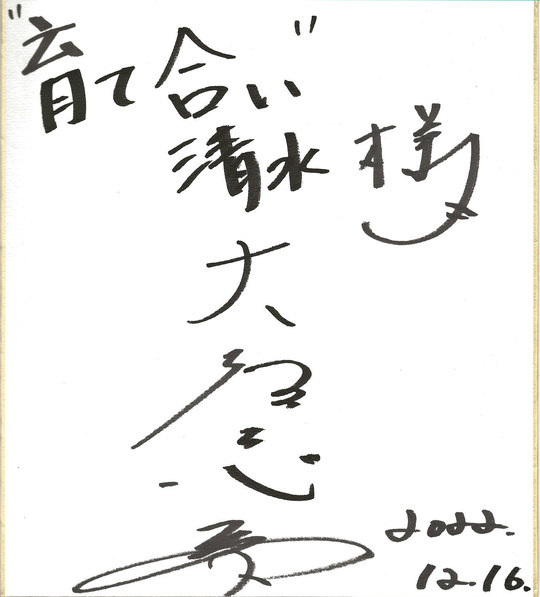 "育て合い"
清水様
大
2022.
12.16.